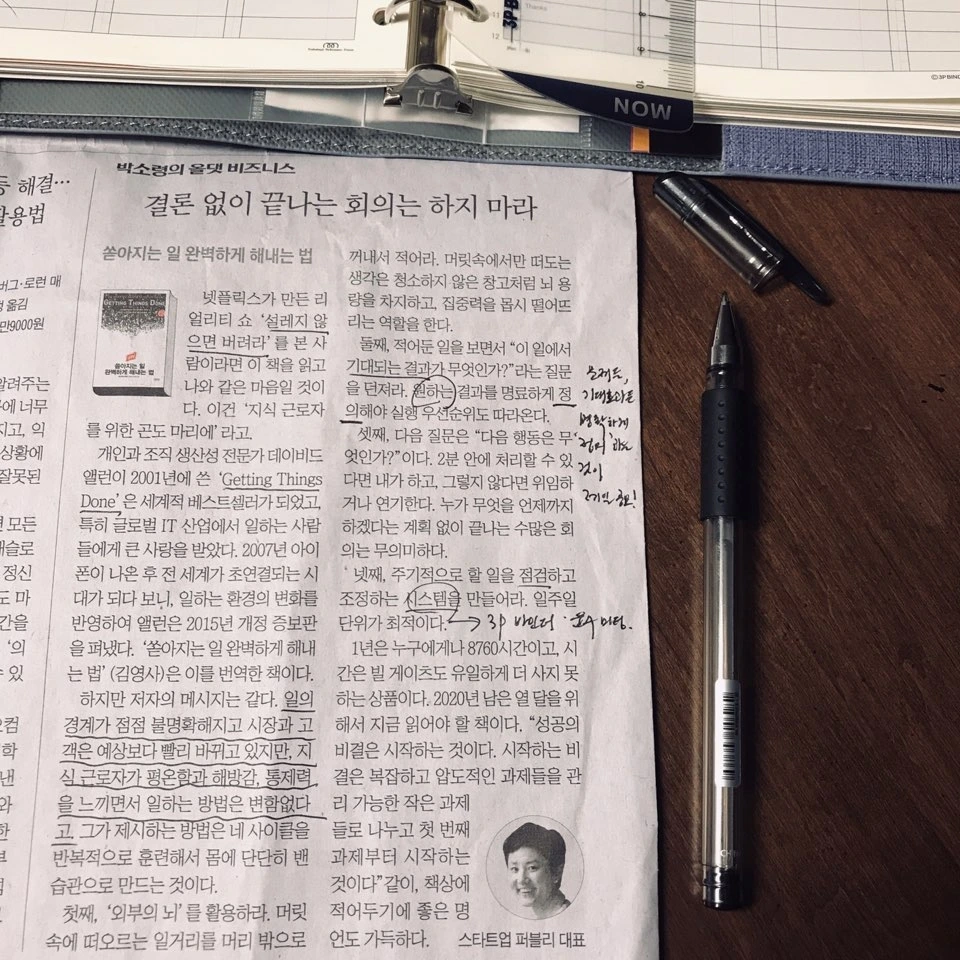 Thanks
11
12
3P B
10
NOW
©3P BIN
등 해결…
활용법
버그·로런 매
옮김
만9000원
알려주는
에 너무
지고, 익
상황에
잘못된
면 모든
개슬로
정신
도 마
간을
'의
수 있
요컴
학
낸
와
한
부
점
박소령의 올댓 비즈니스
결론 없이 끝나는 회의는 하지 마라
쏟아지는 일 완벽하게 해내는 법
GETTING THINGS DONE
쏟아지는 일
완벽하게 해내는 법
넷플릭스가 만든 리
얼리티 쇼 '설레지 않
으면 버려라'를 본 사
람이라면 이 책을 읽고
나와 같은 마음일 것이
다. 이건 '지식 근로자
를 위한 곤도 마리에'라고.
개인과 조직 생산성 전문가 데이비드
앨런이 2001년에 쓴 'Getting Things
Done'은 세계적 베스트셀러가 되었고,
특히 글로벌 IT 산업에서 일하는 사람
들에게 큰 사랑을 받았다. 2007년 아이
폰이 나온 후 전 세계가 초연결되는 시
대가 되다 보니, 일하는 환경의 변화를
반영하여 앨런은 2015년 개정 증보판
을 펴냈다. '쏟아지는 일 완벽하게 해내
는 법'(김영사)은 이를 번역한 책이다.
하지만 저자의 메시지는 같다. 일의
경계가 점점 불명확해지고 시장과 고
객은 예상보다 빨리 바뀌고 있지만, 지
식 근로자가 평온함과 해방감, 통제력
을 느끼면서 일하는 방법은 변함없다
고. 그가 제시하는 방법은 네 사이클을
반복적으로 훈련해서 몸에 단단히 밴
습관으로 만드는 것이다.
첫째, '외부의 뇌'를 활용하라. 머릿
속에 떠오르는 일거리를 머리 밖으로
꺼내서 적어라. 머릿속에서만 떠도는
생각은 청소하지 않은 창고처럼 뇌 용
량을 차지하고, 집중력을 몹시 떨어뜨
리는 역할을 한다.
둘째, 적어둔 일을 보면서 "이 일에서
기대되는 결과가 무엇인가?"라는 질문
을 던져라. 원하는 결과를 명료하게 정
의해야 실행 우선순위도 따라온다.
셋째, 다음 질문은 "다음 행동은 무
엇인가?"이다. 2분 안에 처리할 수 있
다면 내가 하고, 그렇지 않다면 위임하
거나 연기한다. 누가 무엇을 언제까지
하겠다는 계획 없이 끝나는 수많은 회
의는 무의미하다.
넷째, 주기적으로 할 일을 점검하고
조정하는 시스템을 만들어라. 일주일
단위가 최적이다.
1년은 누구에게나 8760시간이고, 시
간은 빌 게이츠도 유일하게 더 사지 못
하는 상품이다. 2020년 남은 열 달을 위
해서 지금 읽어야 할 책이다. "성공의
비결은 시작하는 것이다. 시작하는 비
결은 복잡하고 압도적인 과제들을 관
리 가능한 작은 과제
들로 나누고 첫 번째
과제부터 시작하는
것이다"같이, 책상에
적어두기에 좋은 명
언도 가득하다.
스타트업 퍼블리 대표
기대효과를
명확하게
정의 하는
것이
제일 중요!
3P 바인더